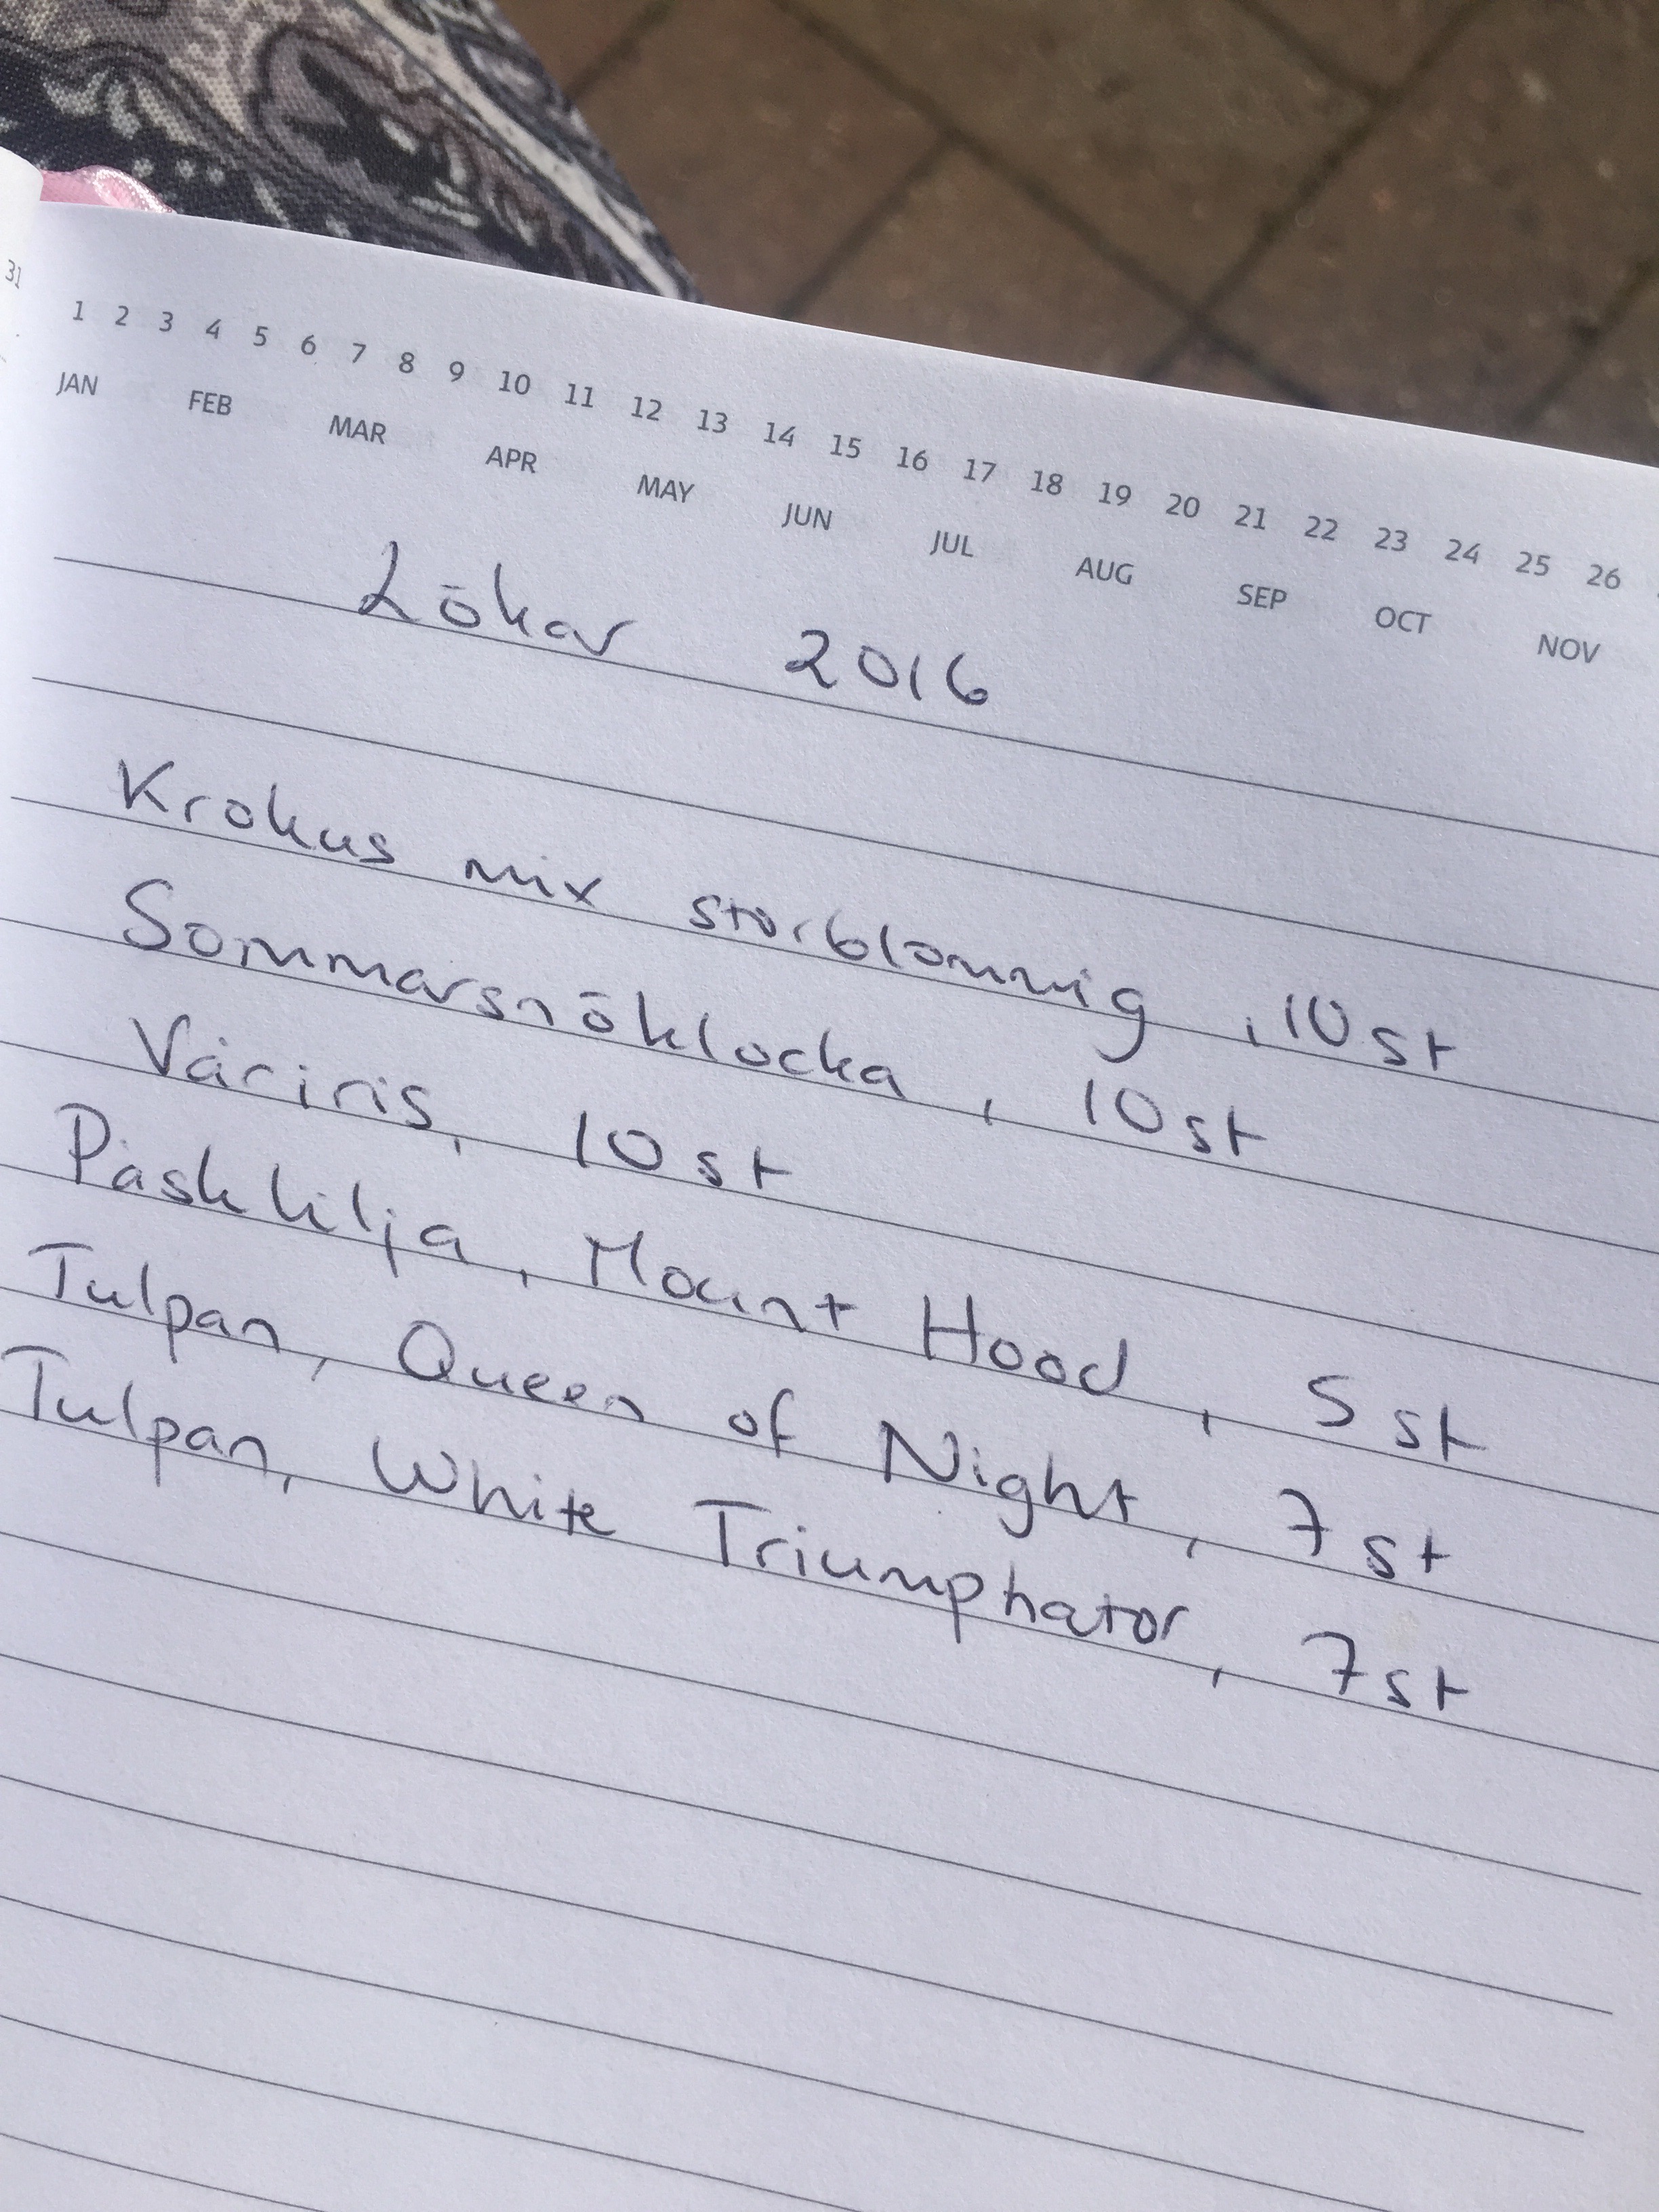 31
1 2 3 4 5 6 7 8 9 10 11 12 13 14 15 16 17 18 19 20 21 22 23 24 25 26
JAN FEB MAR APR MAY JUN JUL AUG SEP OCT NOV
Lökar 2016
Krokus mix storblommig, 10 st
Sommarsnöklocka, 10 st
Våriris, 10 st
Påsklilja, Mount Hood, 5 st
Tulpan, Queen of Night, 7 st
Tulpan, White Triumphator, 7 st